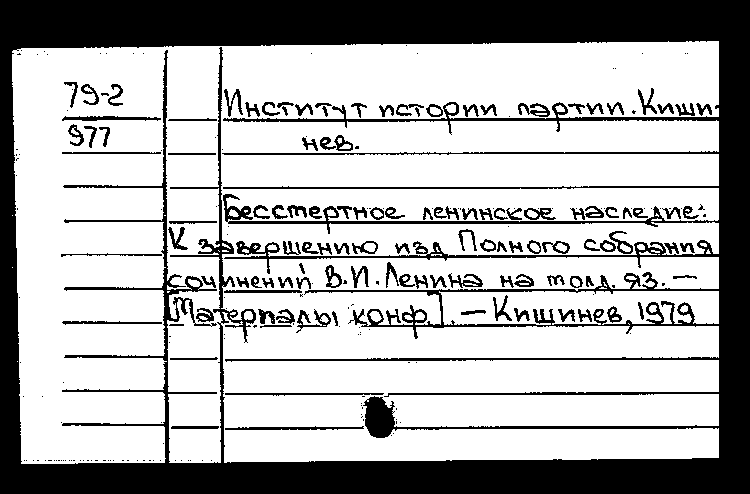 79-2
977
Институт истории партии. Киши-
нев.
Бессмертное ленинское наследие:
К завершению изд Полного собрания
сочинений В.И. Ленина на молд. яз. —
[Материалы конф.]. — Кишинев, 1979